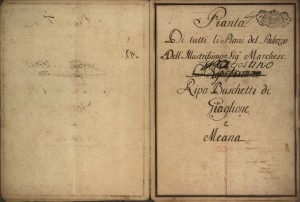 Pianta
Di tutti li Piani del Palazzo
Dell' Illustrissimo Sig.r Marchese
Agostino
Ripa Buschetti di
Giaglione
e
Meana